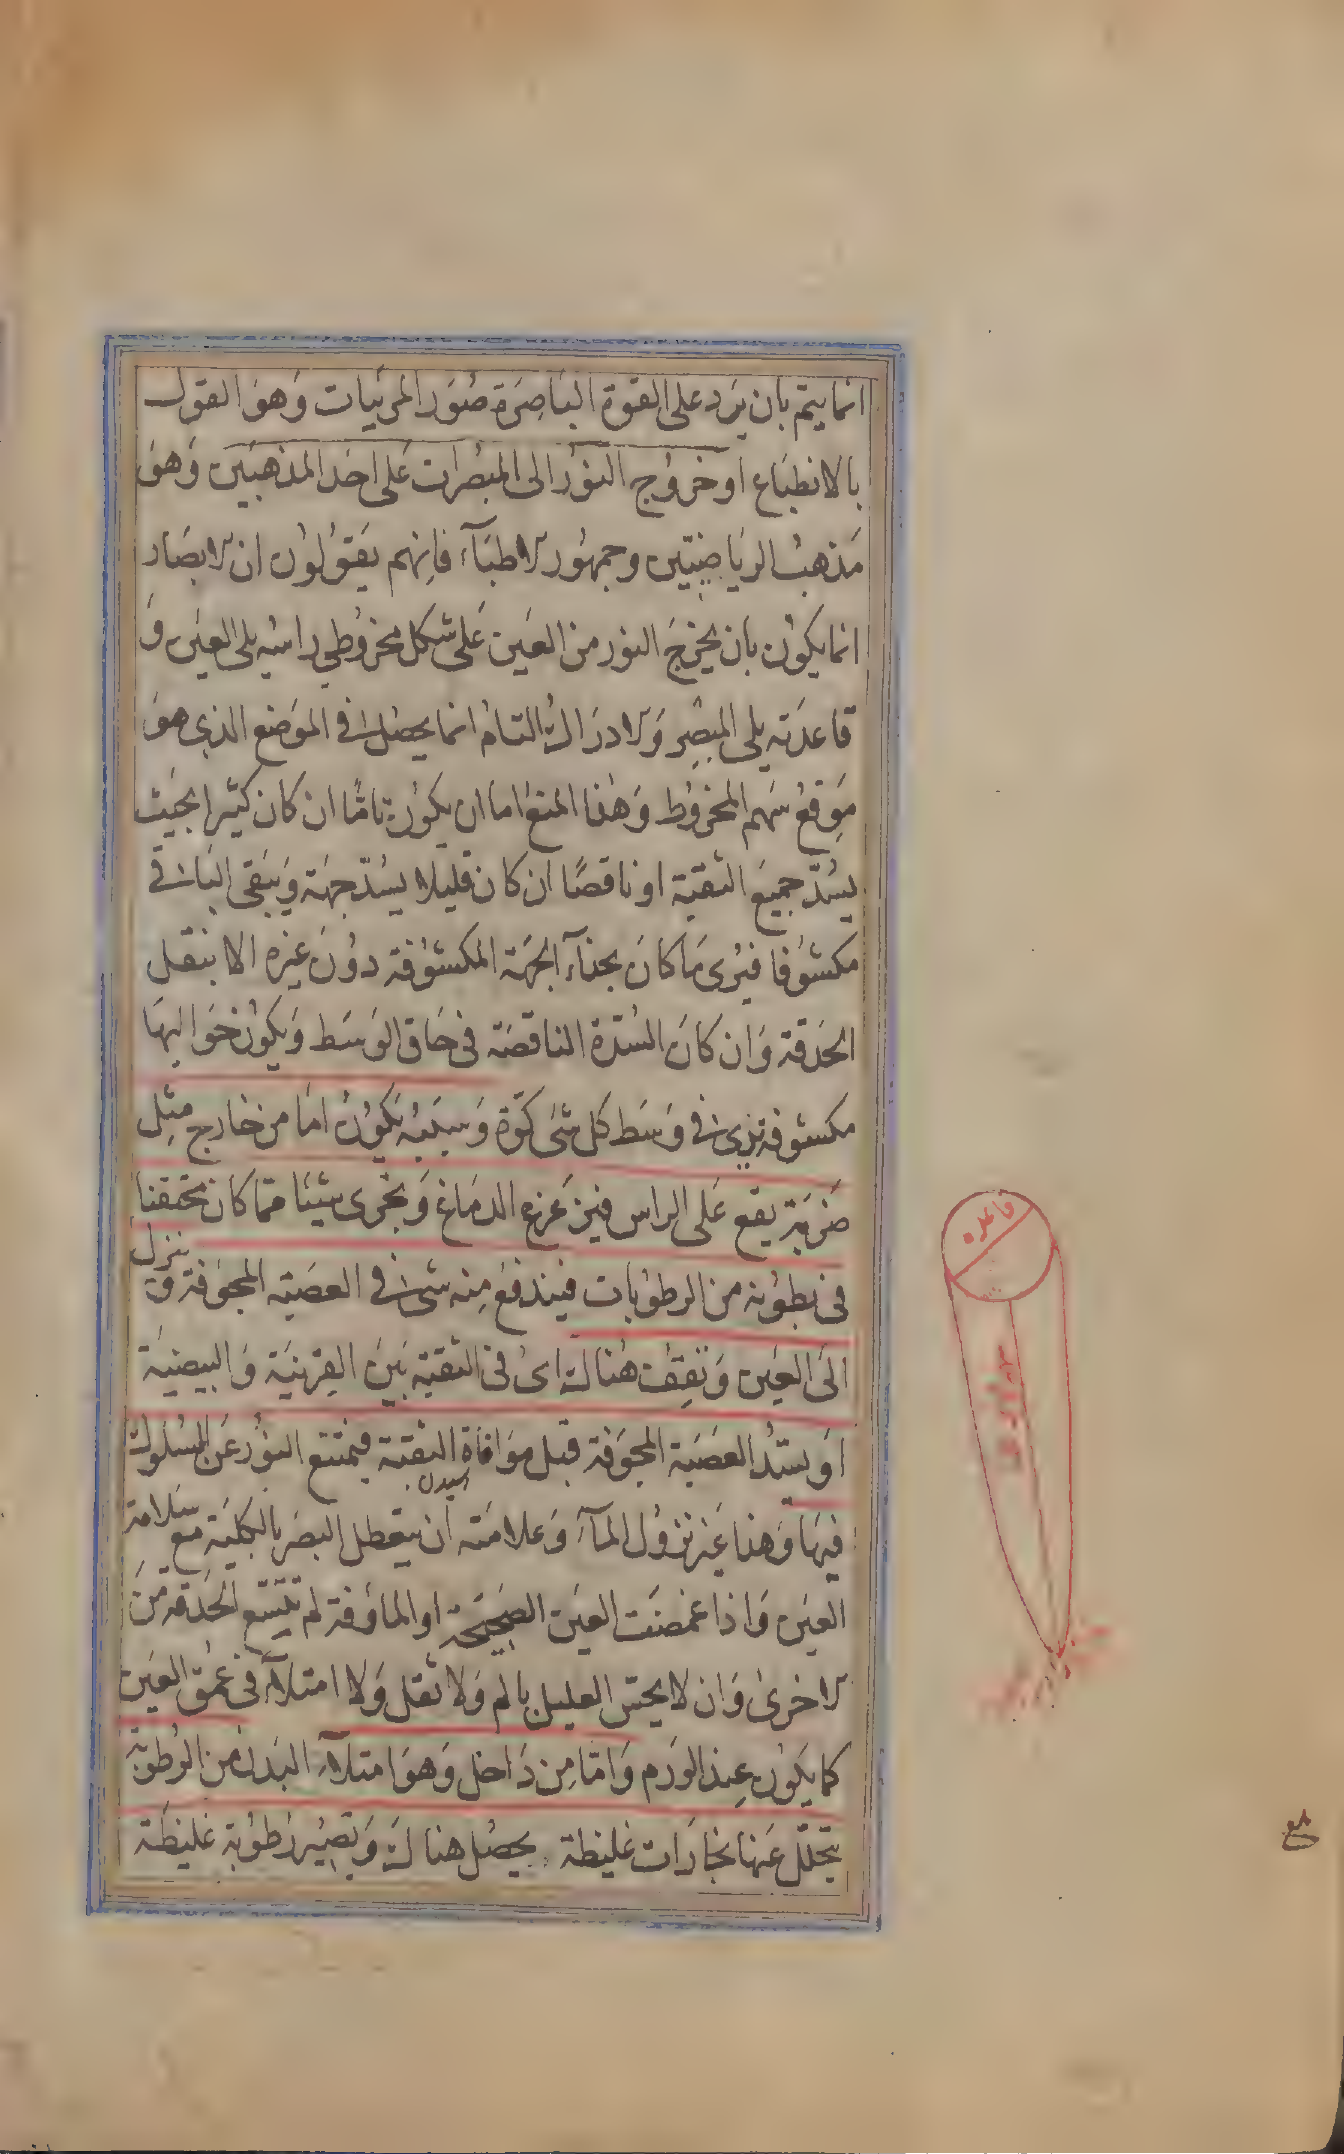 انما يتم بان يرد على القوة الباصرة صور المرئيات وهو القول
بالانطباع او خروج النور الى المبصرات على احد المذهبين وهو
مذهب الرياضيين وجمهور الاطبآء فانهم يقولون ان الابصار
انما يكون بان يخرج النور من العين على شكل مخروطي راسه يلى العين و
قاعدته يلى المبصر والادراك التام انما يحصل في الموضع الذى هو
موقع سهم المخروط وهذا المنع اما ان يكون تامًا ان كان كثيرا بحيث
يسدّ جميع الثقبة او ناقصًا ان كان قليلا يسدّ جهة ويبقى الباقي
مكشوفا فيرى ما كان بحذآء الجهة المكشوفة دون غيره الا بنقل
الحدقة وان كان السدة الناقصة في حاق الوسط ويكون حواليها
مكشوفة يرى في وسط كل شئ كوّة وسببه يكون اما من خارج مثل
ضربة يقع على الراس فيزعزع الدماغ ويجرى شيئا مما كان محتقنا
فى بطونه من الرطوبات فيندفع منه شئ في العصبة المجوفة و ينزل
الى العين وتقف هناك اى فى الثقبة بين القرنية والبيضية
او يسدّ العصبة المجوفة قبل موافاة الثقبة فيمتنع النور عن السلوك
فيها وهذا غير نزول المآء وعلامته ان يتعطل البصر بالكلية مع سلامة
العين واذا غمضت العين الصحيحة او الماوفة لم تتسع الحدقة من
الاخرى وان لا يحس العليل بالم ولا ثقل ولا امتلآء فى عمق العين
كما يكون عند الورم واما من داخل وهو امتلآء البدن من الرطوبة
يتحلل عنها بخارات غليظة يحصل هناك ويصير رطوبة غليظة
قاعده